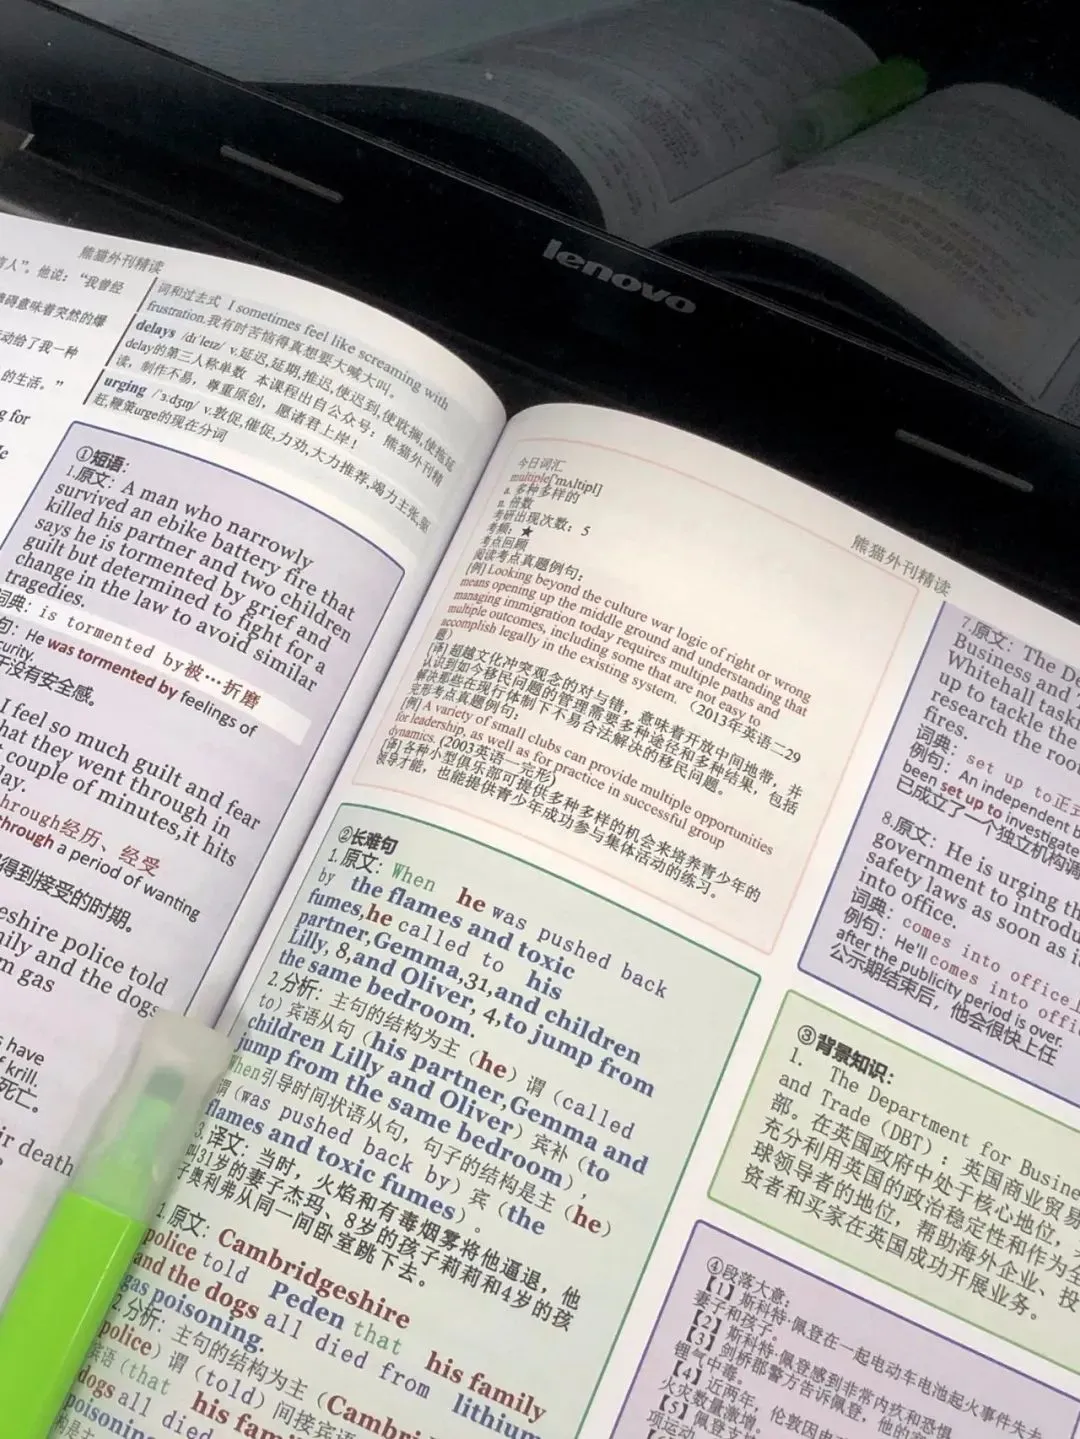 lenovo
熊猫外刊精读
言人”。他说：“我曾经
障碍意味着突然的爆
动给了我一种
的生活。”
g for
词和过去式 I sometimes feel like screaming with
frustration.我有时苦恼得真想要大喊大叫。
delays /dɪˈleɪz/ v.延迟,延期,推迟,使迟到,使耽搁,使拖延
delay的第三人称单数 本课程出自公众号：熊猫外刊精
读，制作不易，尊重原创，愿诸君上岸！
urging /ˈɜːdʒɪŋ/ v.敦促,催促,力劝,大力推荐,竭力主张,驱
赶,鞭策urge的现在分词
①短语：
1.原文：A man who narrowly
survived an ebike battery fire that
killed his partner and two children
says he is tormented by grief and
guilt but determined to fight for a
change in the law to avoid similar
tragedies.
词典：is tormented by被…折磨
句：He was tormented by feelings of
curity.
于没有安全感。
I feel so much guilt and fear
hat they went through in
t couple of minutes,it hits
lay.
hrough经历、经受
through a period of wanting
得到接受的时期。
eshire police told
mily and the dogs
m gas
s have
f krill.
死亡。
ir death
今日词汇
multiple[ˈmʌltɪpl]
a. 多种多样的
n. 倍数
考研出现次数：5
考频：★
考点回顾
阅读考点真题例句：
[例] Looking beyond the culture war logic of right or wrong
means opening up the middle ground and understanding that
managing immigration today requires multiple paths and
multiple outcomes, including some that are not easy to
accomplish legally in the existing system. （2013年英语二29
题）
[译] 超越文化冲突观念的对与错，意味着开放中间地带，并
认识到如今移民问题的管理需要多种途径和多种结果，包括
解决那些在现行体制下不易合法解决的移民问题。
完形考点真题例句：
[例] A variety of small clubs can provide multiple opportunities
for leadership, as well as for practice in successful group
dynamics. (2003英语一完形)
[译] 各种小型俱乐部可提供多种多样的机会来培养青少年的
领导才能，也能提供青少年成功参与集体活动的练习。
②长难句
1.原文：When he was pushed back
by the flames and toxic
fumes,he called to his
partner,Gemma,31,and children
Lilly, 8,and Oliver, 4,to jump from
the same bedroom.
2.分析：主句的结构为主（he）谓（called
to）宾语从句（his partner,Gemma and
children Lilly and Oliver）宾补（to
jump from the same bedroom），
When引导时间状语从句，句子的结构是主（he）
谓（was pushed back by）宾（the
flames and toxic fumes）。
3.译文：当时，火焰和有毒烟雾将他逼退，他
叫31岁的妻子杰玛、8岁的孩子莉莉和4岁的孩
子奥利弗从同一间卧室跳下去。
1.原文：Cambridgeshire
police told Peden that his family
and the dogs all died from lithium
gas poisoning.
2.分析：主句的结构为主（Cambri
police）谓（told）间接宾语
宾语（that his fami
dogs all died
poisoning
熊猫外刊精读
7.原文：The De
Business and
Whitehall taski
up to tackle the
research the root
fires.
词典：set up to正式
例句：An independent b
been set up to investigate
已成立了一个独立机构调
8.原文：He is urging th
government to introdu
safety laws as soon as it
into office.
词典：comes into office上
例句：He'll comes into offi
after the publicity period is over.
公示期结束后，他会很快上任
③背景知识：
1. The Department for Busine
and Trade（DBT）：英国商业贸易
部。在英国政府中处于核心地位，
充分利用英国的政治稳定性和作为全
球领导者的地位，帮助海外企业、投
资者和买家在英国成功开展业务。
④段落大意：
【1】斯科特·佩登在一起电动车电池起火事件失去
妻子和孩子。
【2】斯科特·佩登感到非常内疚和恐惧
【3】剑桥郡警方告诉佩登，他的家
锂气中毒。
【4】近两年，伦敦因电
火灾数量激增。
【5】佩登支持
项运动